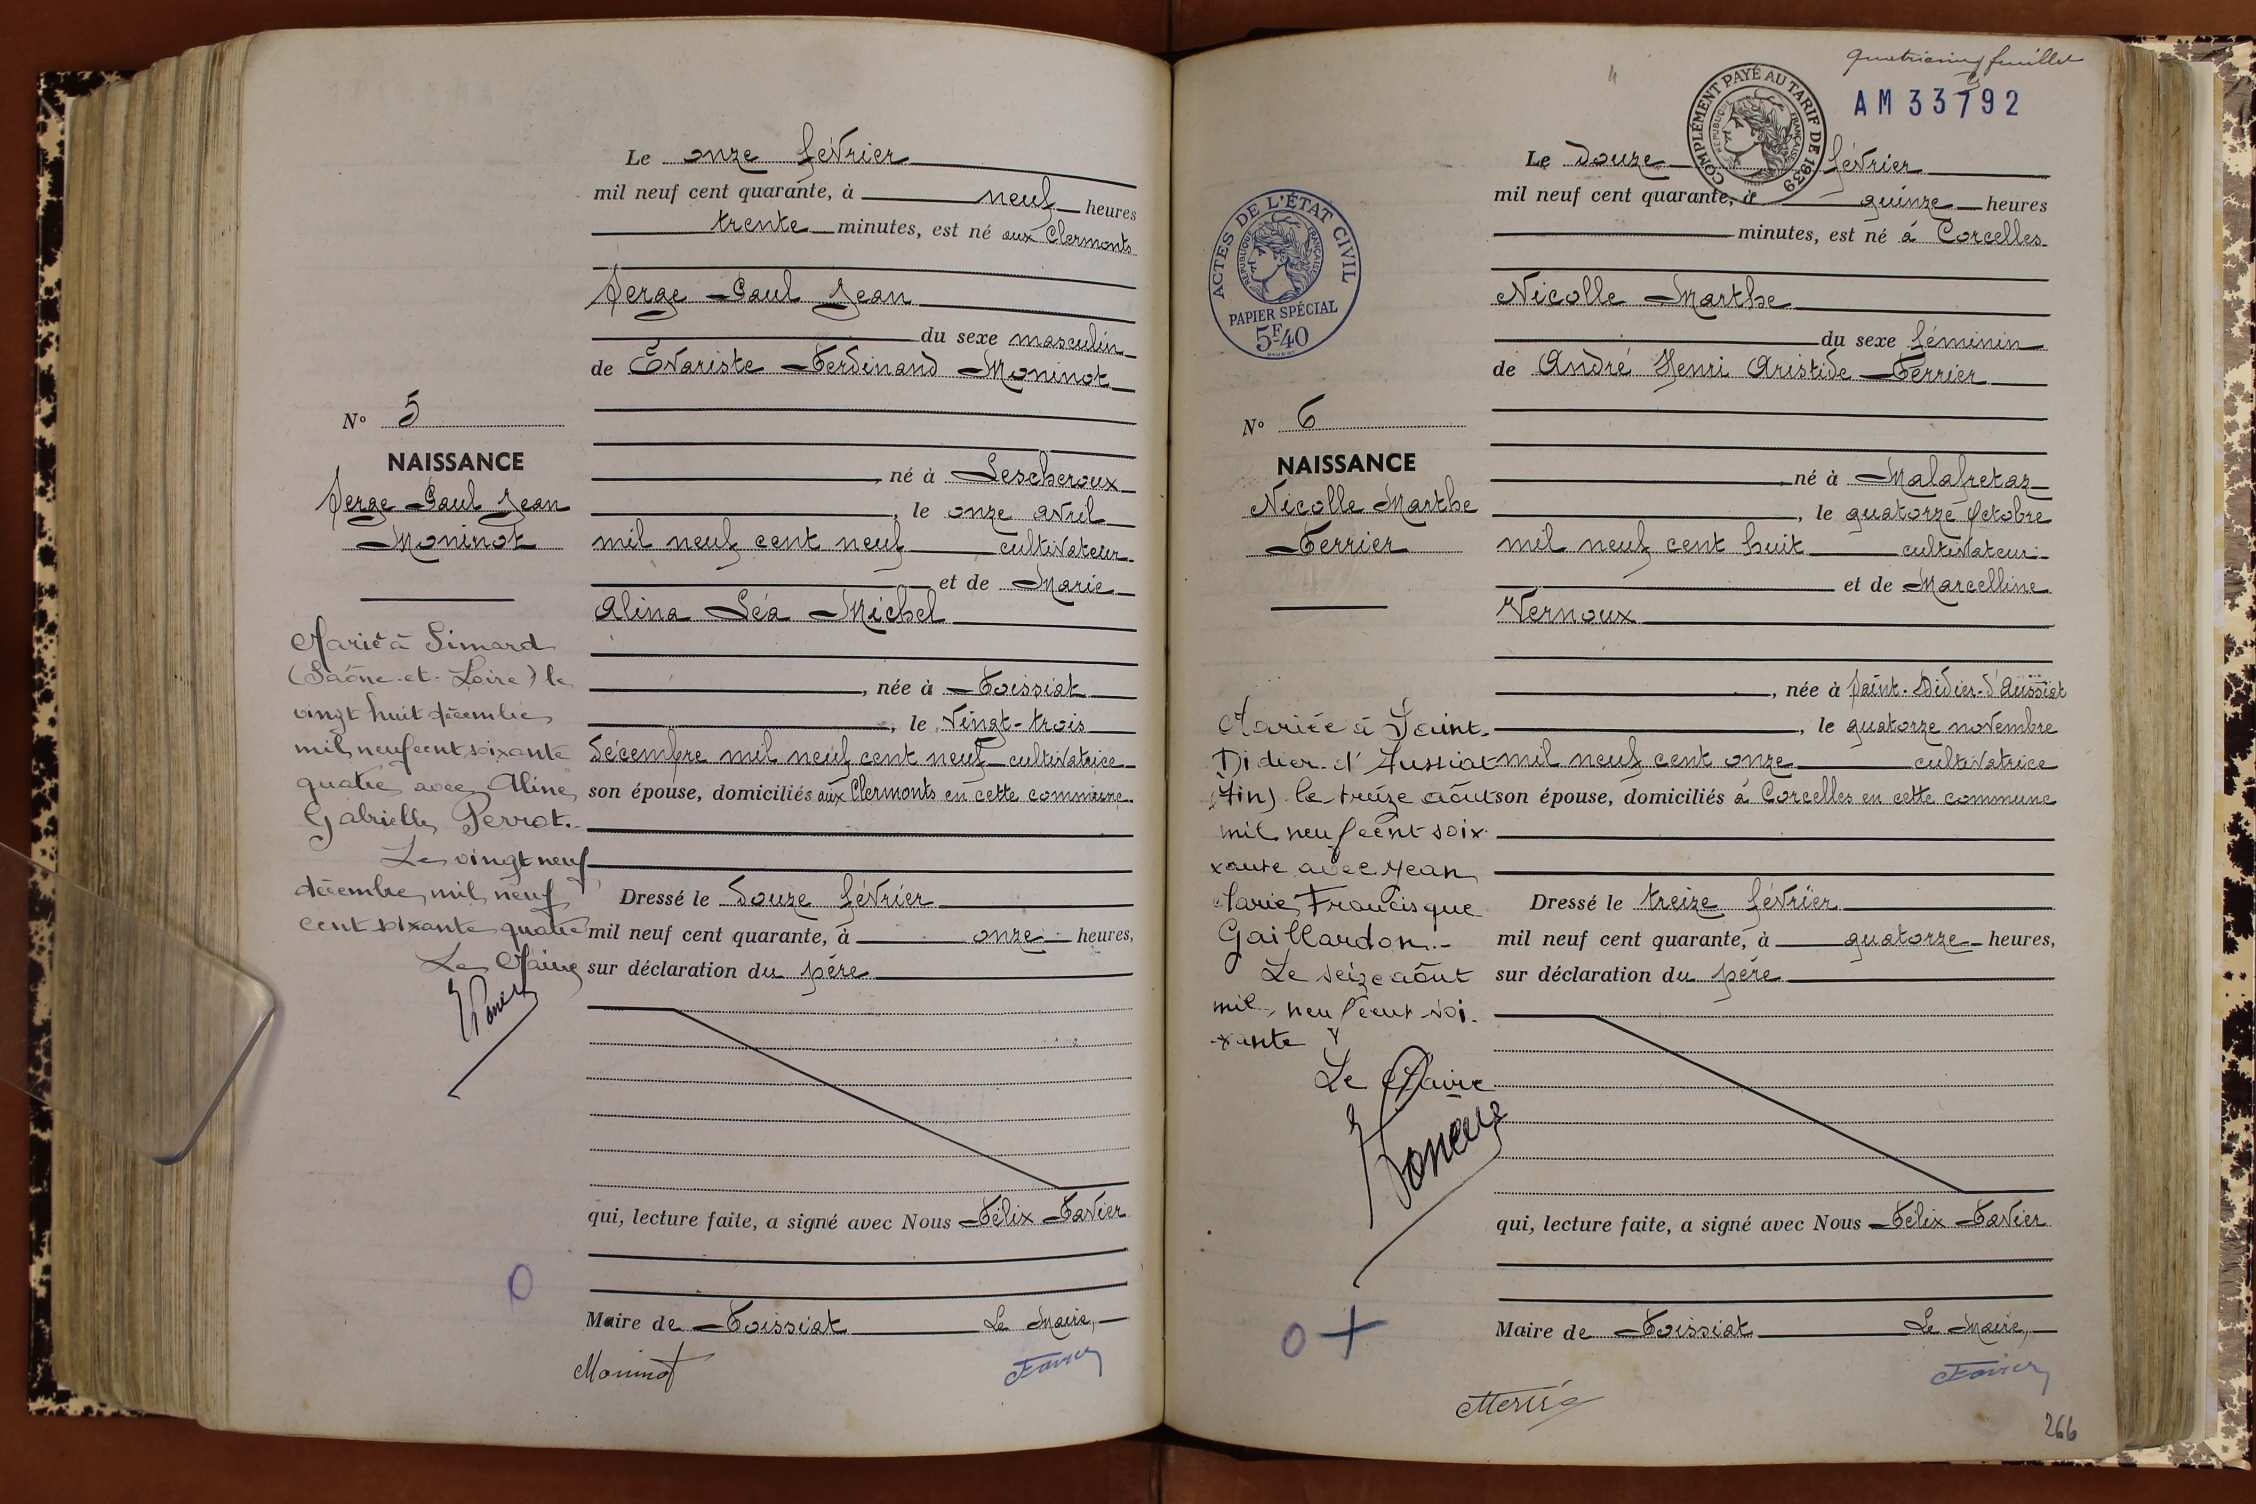 Le onze février
mil neuf cent quarante, à neuf heures
trente minutes, est né aux Clermonts
Serge Paul Jean
du sexe masculin
de Évariste Ferdinand Moninot
N° 5
NAISSANCE
Serge Paul Jean
Moninot
né à Lescheroux
, le onze avril
mil neuf cent neuf cultivateur
et de Marie
Alina Léa Michel
, née à Foissiat
, le vingt-trois
décembre mil neuf cent neuf cultivatrice
son épouse, domiciliés aux Clermonts en cette commune
Dressé le douze février
mil neuf cent quarante, à onze heures,
sur déclaration du père
qui, lecture faite, a signé avec Nous Félix Favier
Maire de Foissiat Le Maire,
Moninot
Favier
Marié à Simard
(Saône-et-Loire) le
vingt huit décembre
mil neuf cent soixante
quatre avec Aline
Gabrielle Perrot.
Le vingt neuf
décembre mil neuf
cent soixante quatre
Le Maire
quatrième feuillet
AM 33792
COMPLÉMENT PAYÉ AU TARIF DE 1939
RÉPUBLIQUE FRANÇAISE
ACTES DE L'ÉTAT CIVIL
RÉPUBLIQUE FRANÇAISE
PAPIER SPÉCIAL
5F40
Le douze février
mil neuf cent quarante, à quinze heures
minutes, est né à Corcelles
Nicolle Marthe
du sexe féminin
de André Henri Aristide Ferrier
N° 6
NAISSANCE
Nicolle Marthe
Ferrier
né à Malafretaz
, le quatorze Octobre
mil neuf cent huit cultivateur
et de Marcelline
Vernoux
, née à Saint-Didier-d'Aussiat
, le quatorze novembre
mil neuf cent onze cultivatrice
son épouse, domiciliés à Corcelles en cette commune
Dressé le treize février
mil neuf cent quarante, à quatorze heures,
sur déclaration du père
qui, lecture faite, a signé avec Nous Félix Favier
Maire de Foissiat Le Maire,
Favier
Mariée à Saint-
Didier d'Aussiat
(Ain) le treize août
mil neuf cent soix
xante avec Jean
Marie Francisque
Gaillardon.-
Le seize août
mil neuf cent soi
xante
Le Maire
266